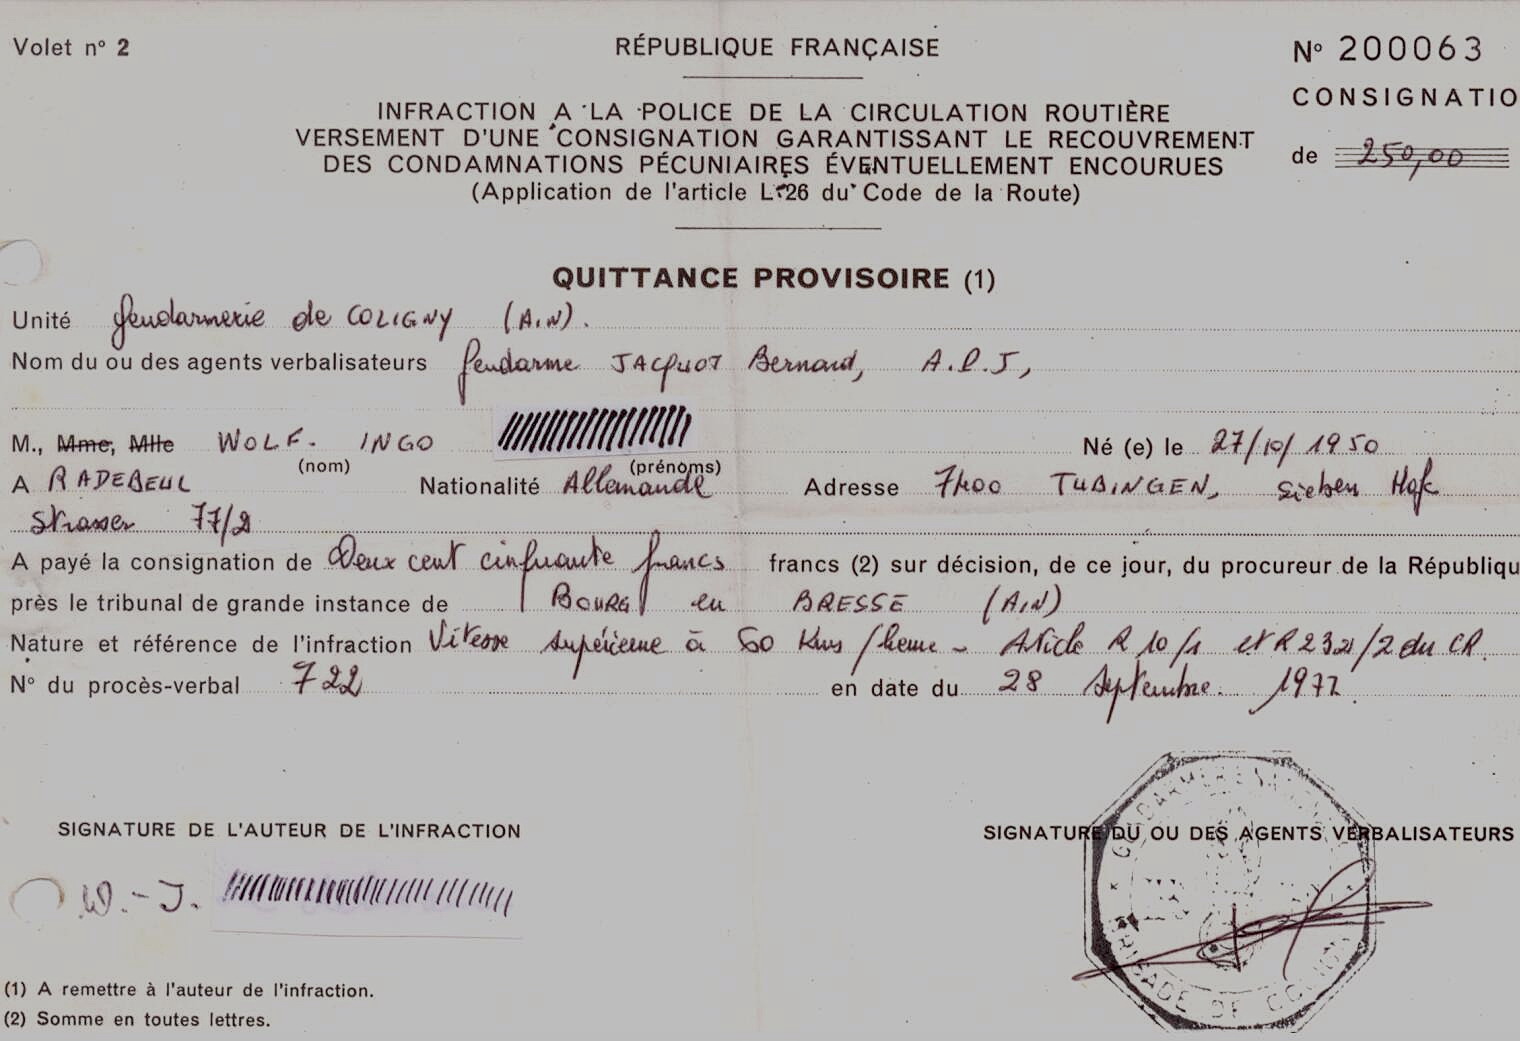 Volet nº 2
RÉPUBLIQUE FRANÇAISE
Nº 200063
CONSIGNATIO
de 250,00
INFRACTION A LA POLICE DE LA CIRCULATION ROUTIÈRE
VERSEMENT D'UNE CONSIGNATION GARANTISSANT LE RECOUVREMENT
DES CONDAMNATIONS PÉCUNIAIRES ÉVENTUELLEMENT ENCOURUES
(Application de l'article L 26 du Code de la Route)
QUITTANCE PROVISOIRE (1)
Unité Gendarmerie de COLIGNY (AIN).
Nom du ou des agents verbalisateurs Gendarme JACQUOT Bernard, A.P.J,
M., Mme, Mlle WOLF- INGO Né (e) le 27/10/1950
(nom) (prénoms)
A RADEBEUL Nationalité Allemande Adresse 7400 TUBINGEN, Sieben Hofe
Strasser 77/2
A payé la consignation de Deux cent cinquante francs francs (2) sur décision, de ce jour, du procureur de la Républiqu
près le tribunal de grande instance de BOURG en BRESSE (AIN)
Nature et référence de l'infraction Vitesse supérieure à 60 Kms/heure - Article R 10/1 et R 232/2 du CR.
Nº du procès-verbal 722 en date du 28 Septembre 1977.
SIGNATURE DE L'AUTEUR DE L'INFRACTION
SIGNATURE DU OU DES AGENTS VERBALISATEURS
W.-I.
BRIGADE DE COLIGNY
(1) A remettre à l'auteur de l'infraction.
(2) Somme en toutes lettres.